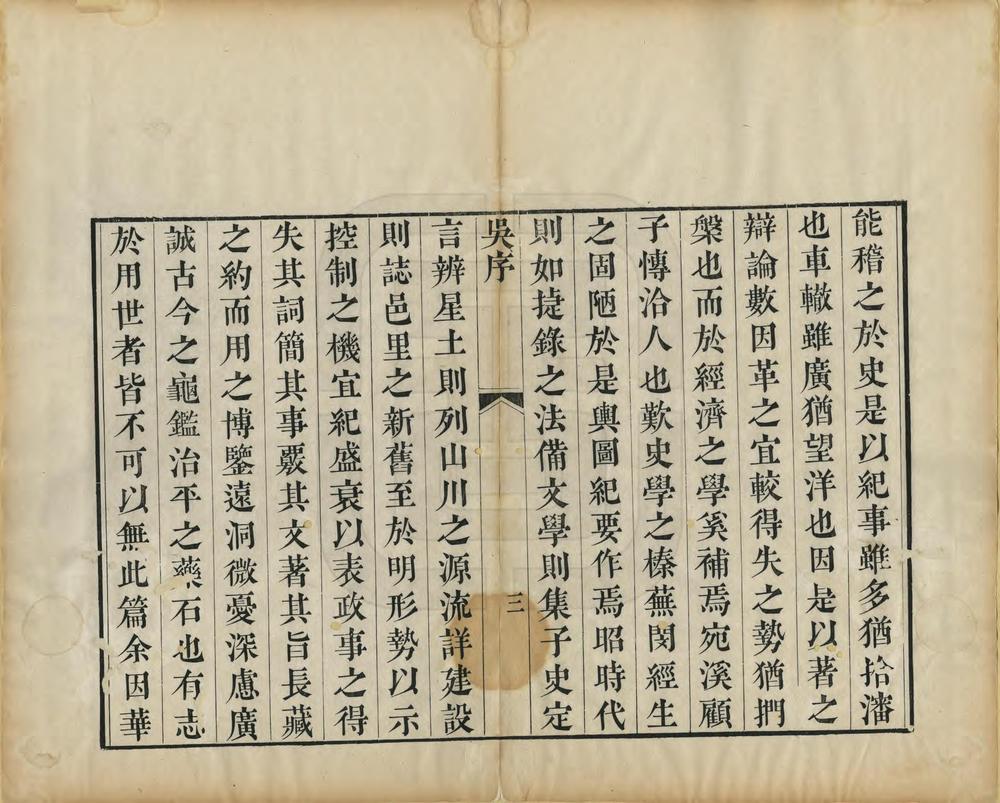 能稽之於史是以紀事雖多猶拾瀋
也車轍雖廣猶望洋也因是以著之
辯論數因革之宜較得失之勢猶捫
槃也而於經濟之學奚補焉宛溪顧
子慱洽人也歎史學之榛蕪閔經生
之固陋於是輿圖紀要作焉昭時代
則如捷錄之法備文學則集子史定
吳序
三
言辨星土則列山川之源流詳建設
則誌邑里之新舊至於明形勢以示
控制之機宜紀盛衰以表政事之得
失其詞簡其事覈其文著其旨長藏
之約而用之博鑒遠洞微憂深慮廣
誠古今之龜鑑治平之藥石也有志
於用世者皆不可以無此篇余因華